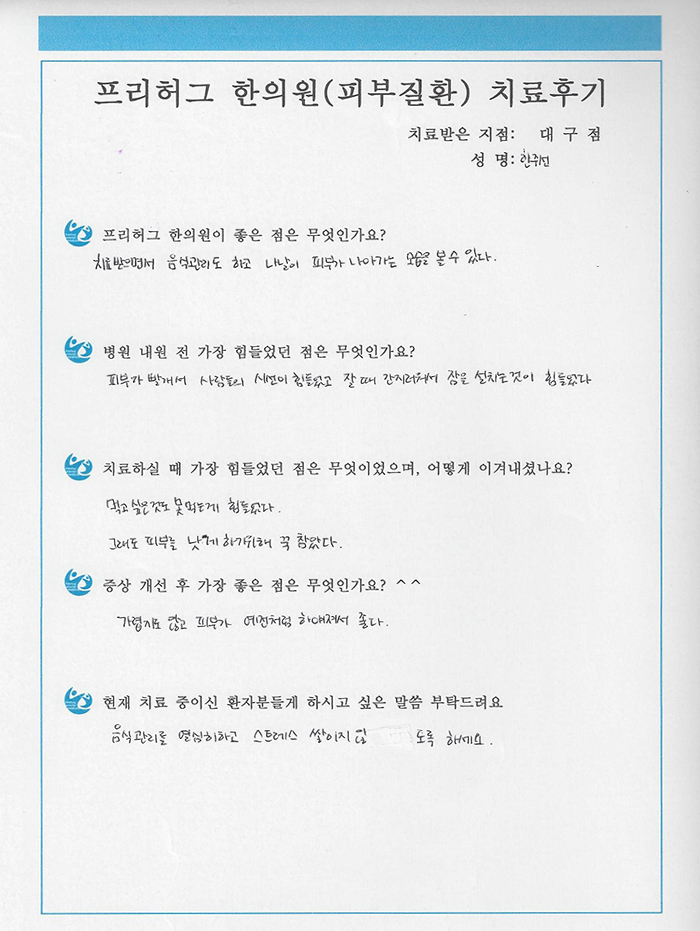 프리허그 한의원(피부질환) 치료후기
치료받은 지점: 대 구 점
성 명: 한귀선
프리허그 한의원이 좋은 점은 무엇인가요?
치료받으면서 음식관리도 하고 나날이 피부가 나아가는 모습을 볼 수 있다.
병원 내원 전 가장 힘들었던 점은 무엇인가요?
피부가 빨개서 사람들의 시선이 힘들었고 잘 때 간지러워서 잠을 설치는것이 힘들었다
치료하실 때 가장 힘들었던 점은 무엇이었으며, 어떻게 이겨내셨나요?
먹고싶은것도 못먹는게 힘들었다.
그래도 피부를 낫게하기위해 꾹 참았다.
증상 개선 후 가장 좋은 점은 무엇인가요? ^ ^
가렵지도 않고 피부가 예전처럼 하얘져서 좋다.
현재 치료 중이신 환자분들게 하시고 싶은 말씀 부탁드려요
음식관리를 열심히하고 스트레스 쌓이지 도록 하세요.